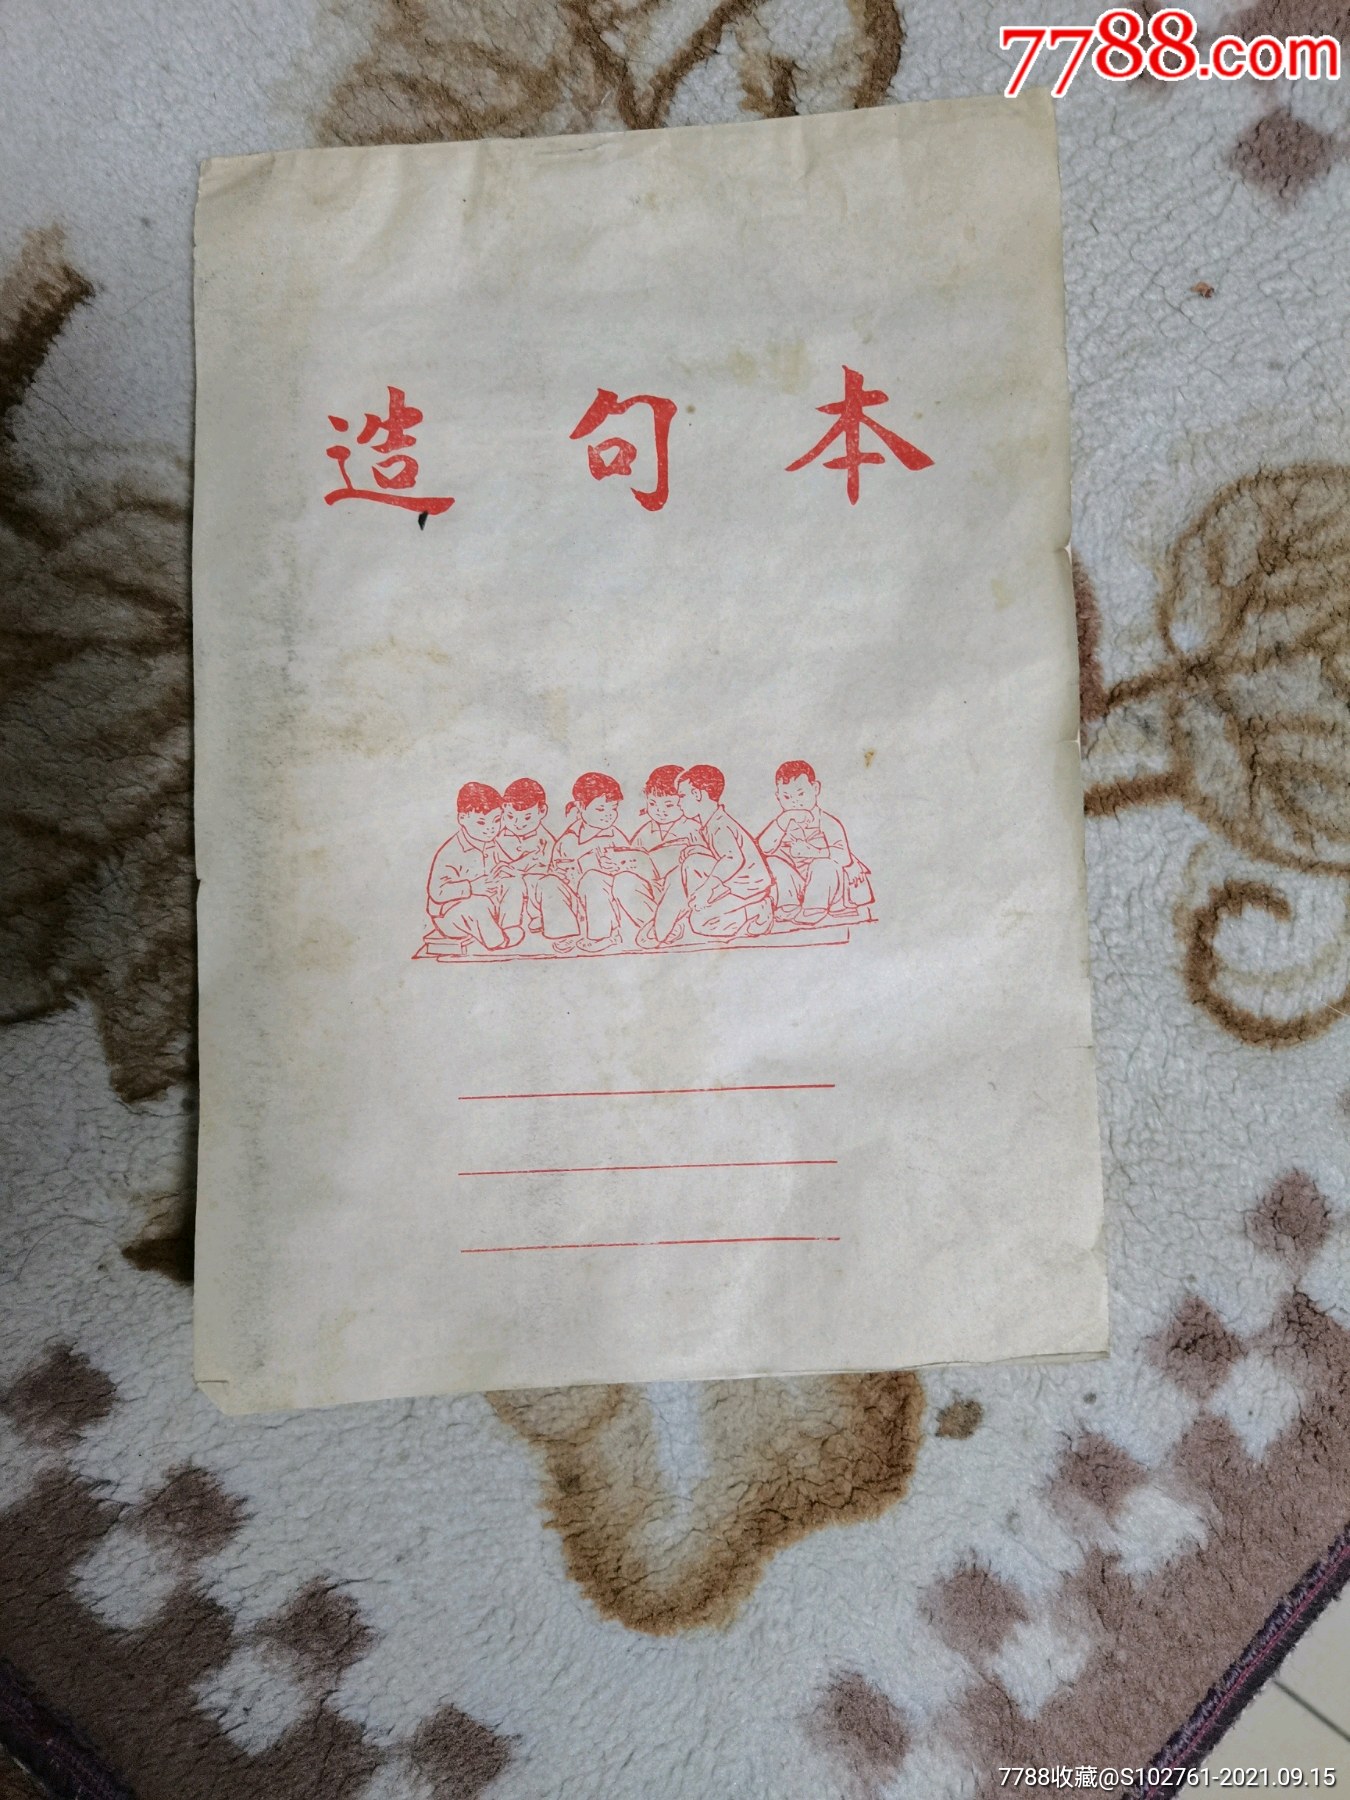 7788.com
造句本
7788收藏@S102761-2021.09.15